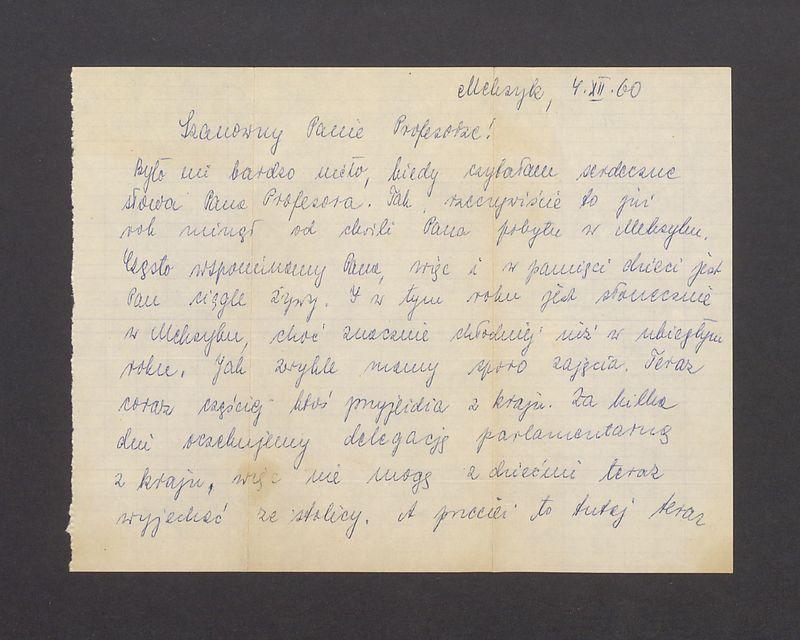 Meksyk, 4.XII.60
Szanowny Panie Profesorze!
Było mi bardzo miło, kiedy czytałam serdeczne
słowa Pana Profesora. Tak, rzeczywiście to już
rok minął od chwili Pana pobytu w Meksyku.
Często wspominamy Pana, więc i w pamięci dzieci jest
Pan ciągle żywy. I w tym roku jest słonecznie
w Meksyku, choć znacznie chłodniej niż w ubiegłym
roku. Jak zwykle mamy sporo zajęcia. Teraz
coraz częściej ktoś przyjeżdża z kraju. Za kilka
dni oczekujemy delegację parlamentarną
z kraju, więc nie mogę z dziećmi teraz
wyjechać ze stolicy. A przecież to tutaj teraz